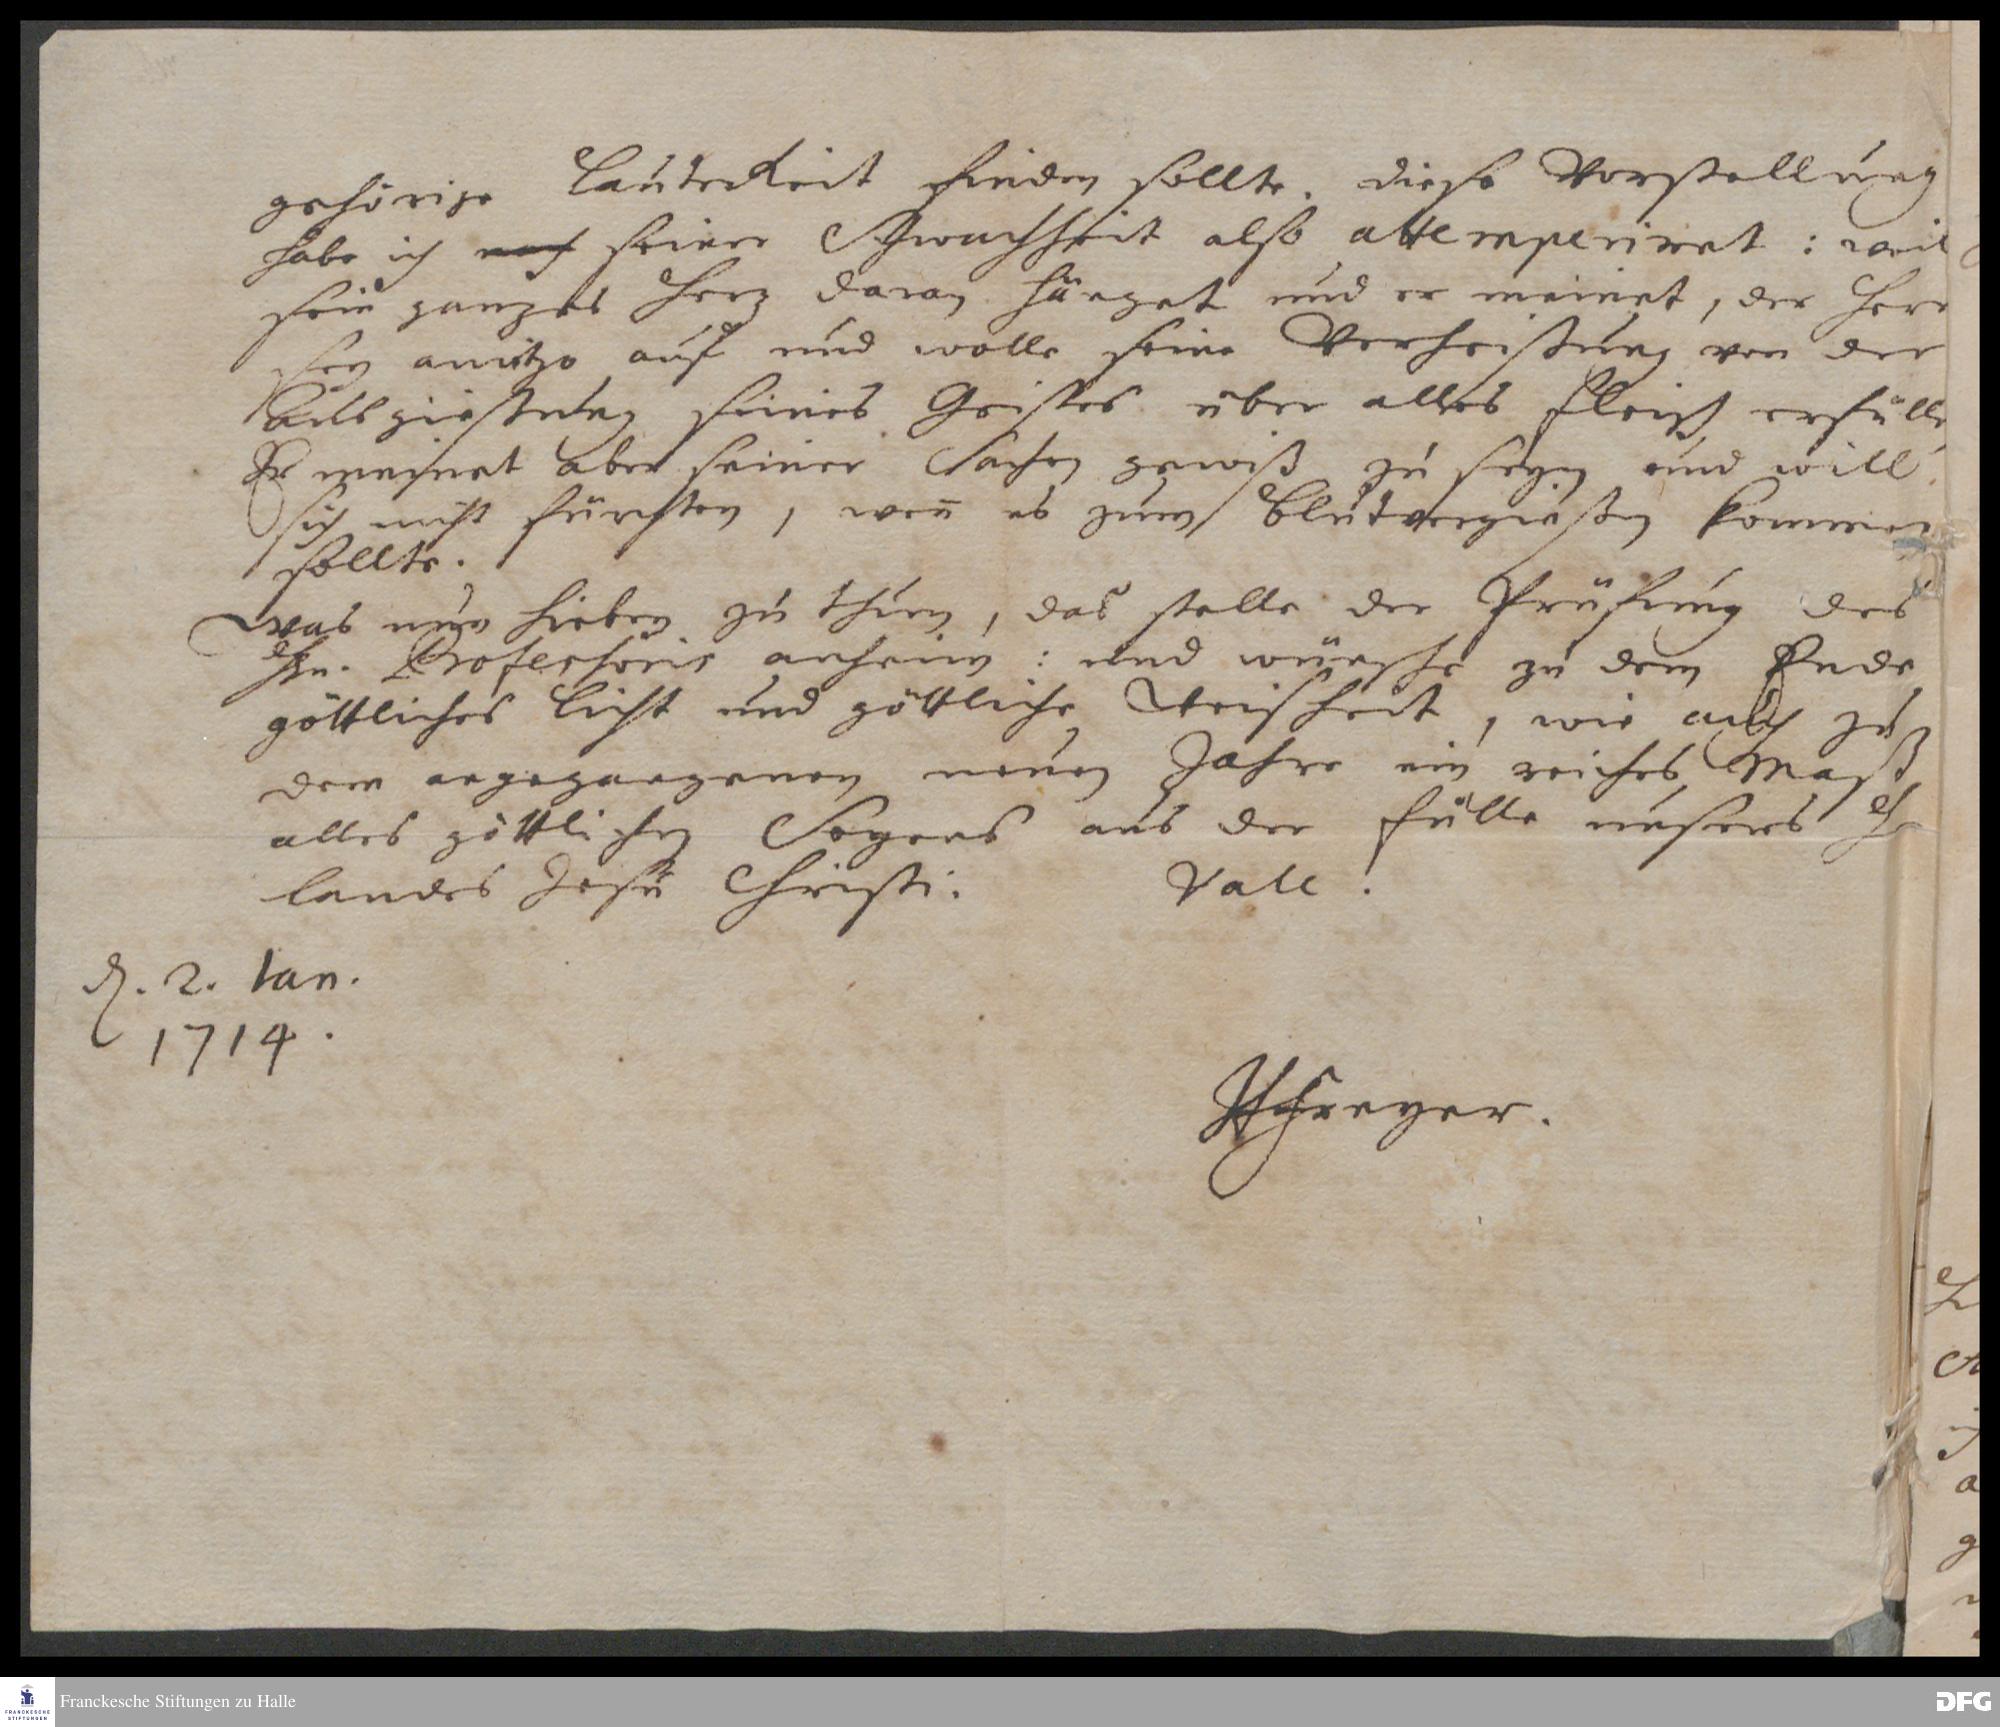 gehörige Lauterkeit finden sollte. diese Vorstellung
habe ich nach seiner Schwachheit also attemperiret: weil
sein ganzes Herz daran hänget und er meinet, der Herr
sey anitzo auf und wolle seine Verheißung von der
Ausgießung seines Geistes über alles Fleisch erfülle
Er meinet aber seiner Sachen gewiß zu seyn und will
sich nicht fürchten, weñ es zum Blutvergießen kommen
sollte.
Was nun hieben zu thun, das stelle der Prüfung des
Hn. Professoris anheim: und wünsche zu dem Ende
göttliches Licht und göttliche Weisheit, wie auch zu
dem angegangenen neuen Jahre ein reiches Maß
alles göttlichen Segens aus der Fülle unsers H
landes Jesu Christi. Vale!
d. 2. Ian.
1714.
HFreyer.
Franckesche Stiftungen zu Halle
FRANCKESCHE
STIFTUNGEN
DFG